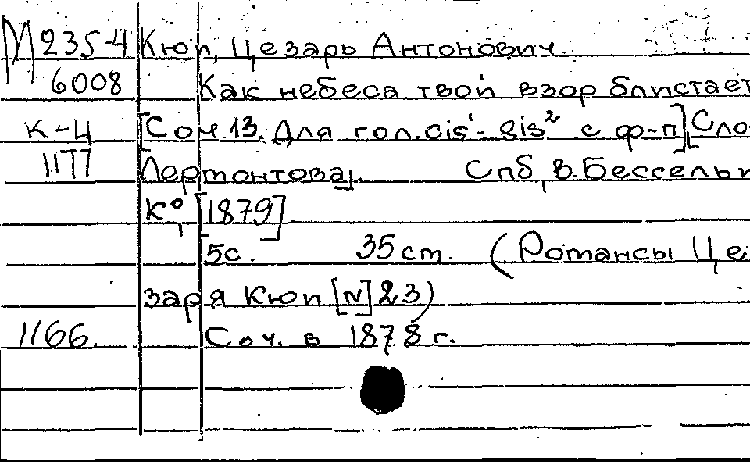 М235-4 Кюи, Цезарь Антонович.
6008 Как небеса твой взор блистает
К-Ц [Соч.13. Для гол. cis¹-gis² с ф-п], [Сло
1177 Лермонтова]. Спб, В. Бессель и
Кº, [1879]
5с. 35 см. (Романсы Це
заря Кюи [N] 23)
1166. Соч. в 1878 г.